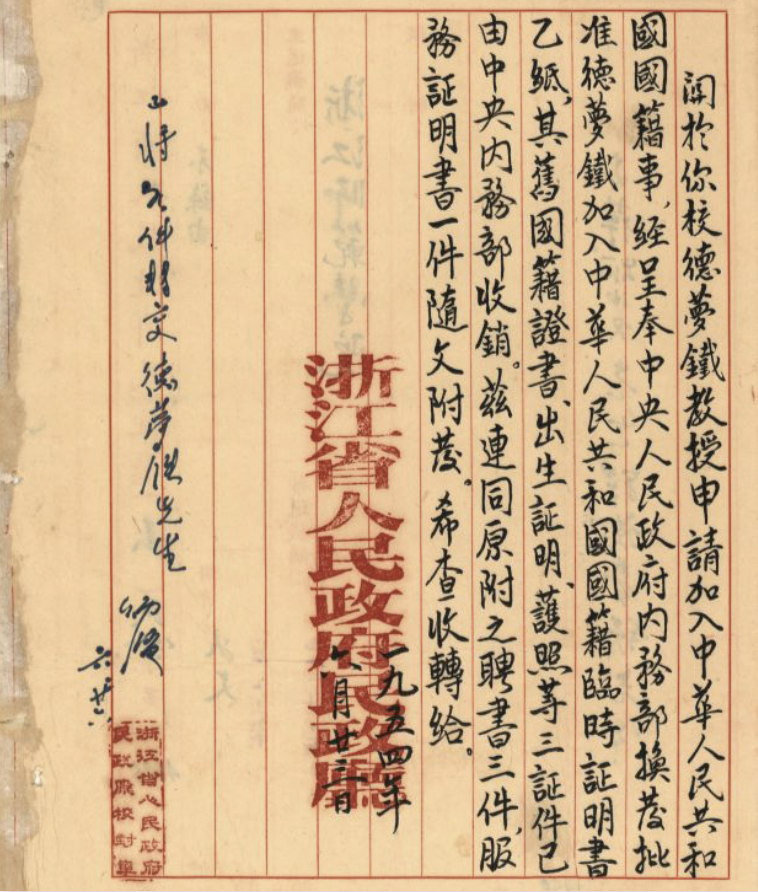 關於你校德夢鐵教授申請加入中華人民共和
國國籍事，經呈奉中央人民政府內務部換發批
准德夢鐵加入中華人民共和國國籍臨時証明書
乙紙，其舊國籍證書、出生証明、護照等三証件已
由中央內務部收銷。茲連同原附之聘書三件，服
務証明書一件隨文附發。希查收轉給。
一九五四年
六月廿三日
浙江省人民政府民政廳
件轉交德夢鐵先生
六
浙江省人民政府
民政廳校封章